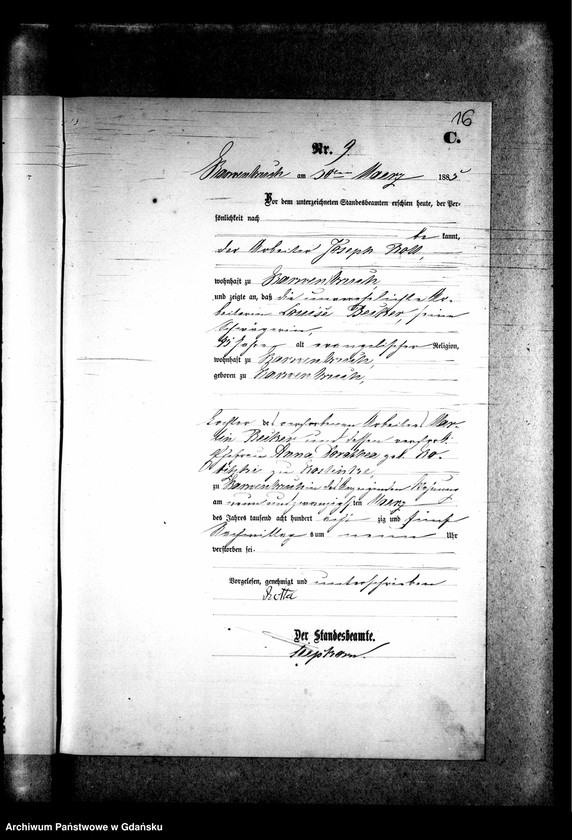 16
C.
Nr. 9
am 30ten Maerz 1885
Vor dem unterzeichneten Standesbeamten erschien heute, der Per-
sönlichkeit nach
be kannt,
der Arbeiter Joseph
wohnhaft zu
und zeigte an, daß die unverehelichte Ar-
beiterin Louise Becker, seine
Schwägerin,
alt evangelischer Religion,
wohnhaft zu
geboren zu
Tochter des verstorbenen Arbeiters Mar-
tin Becker und dessen verstorb.
Ehefrau Anna Dorothea geb.
zu
zu in des Anzeigenden Wohnung
am neun und zwanzigsten Maerz
des Jahres tausend acht hundert acht zig und fünf
Nachmittags um neun Uhr
verstorben sei.
Vorgelesen, genehmigt und unterschrieben
Der Standesbeamte.
Archiwum Państwowe w Gdańsku